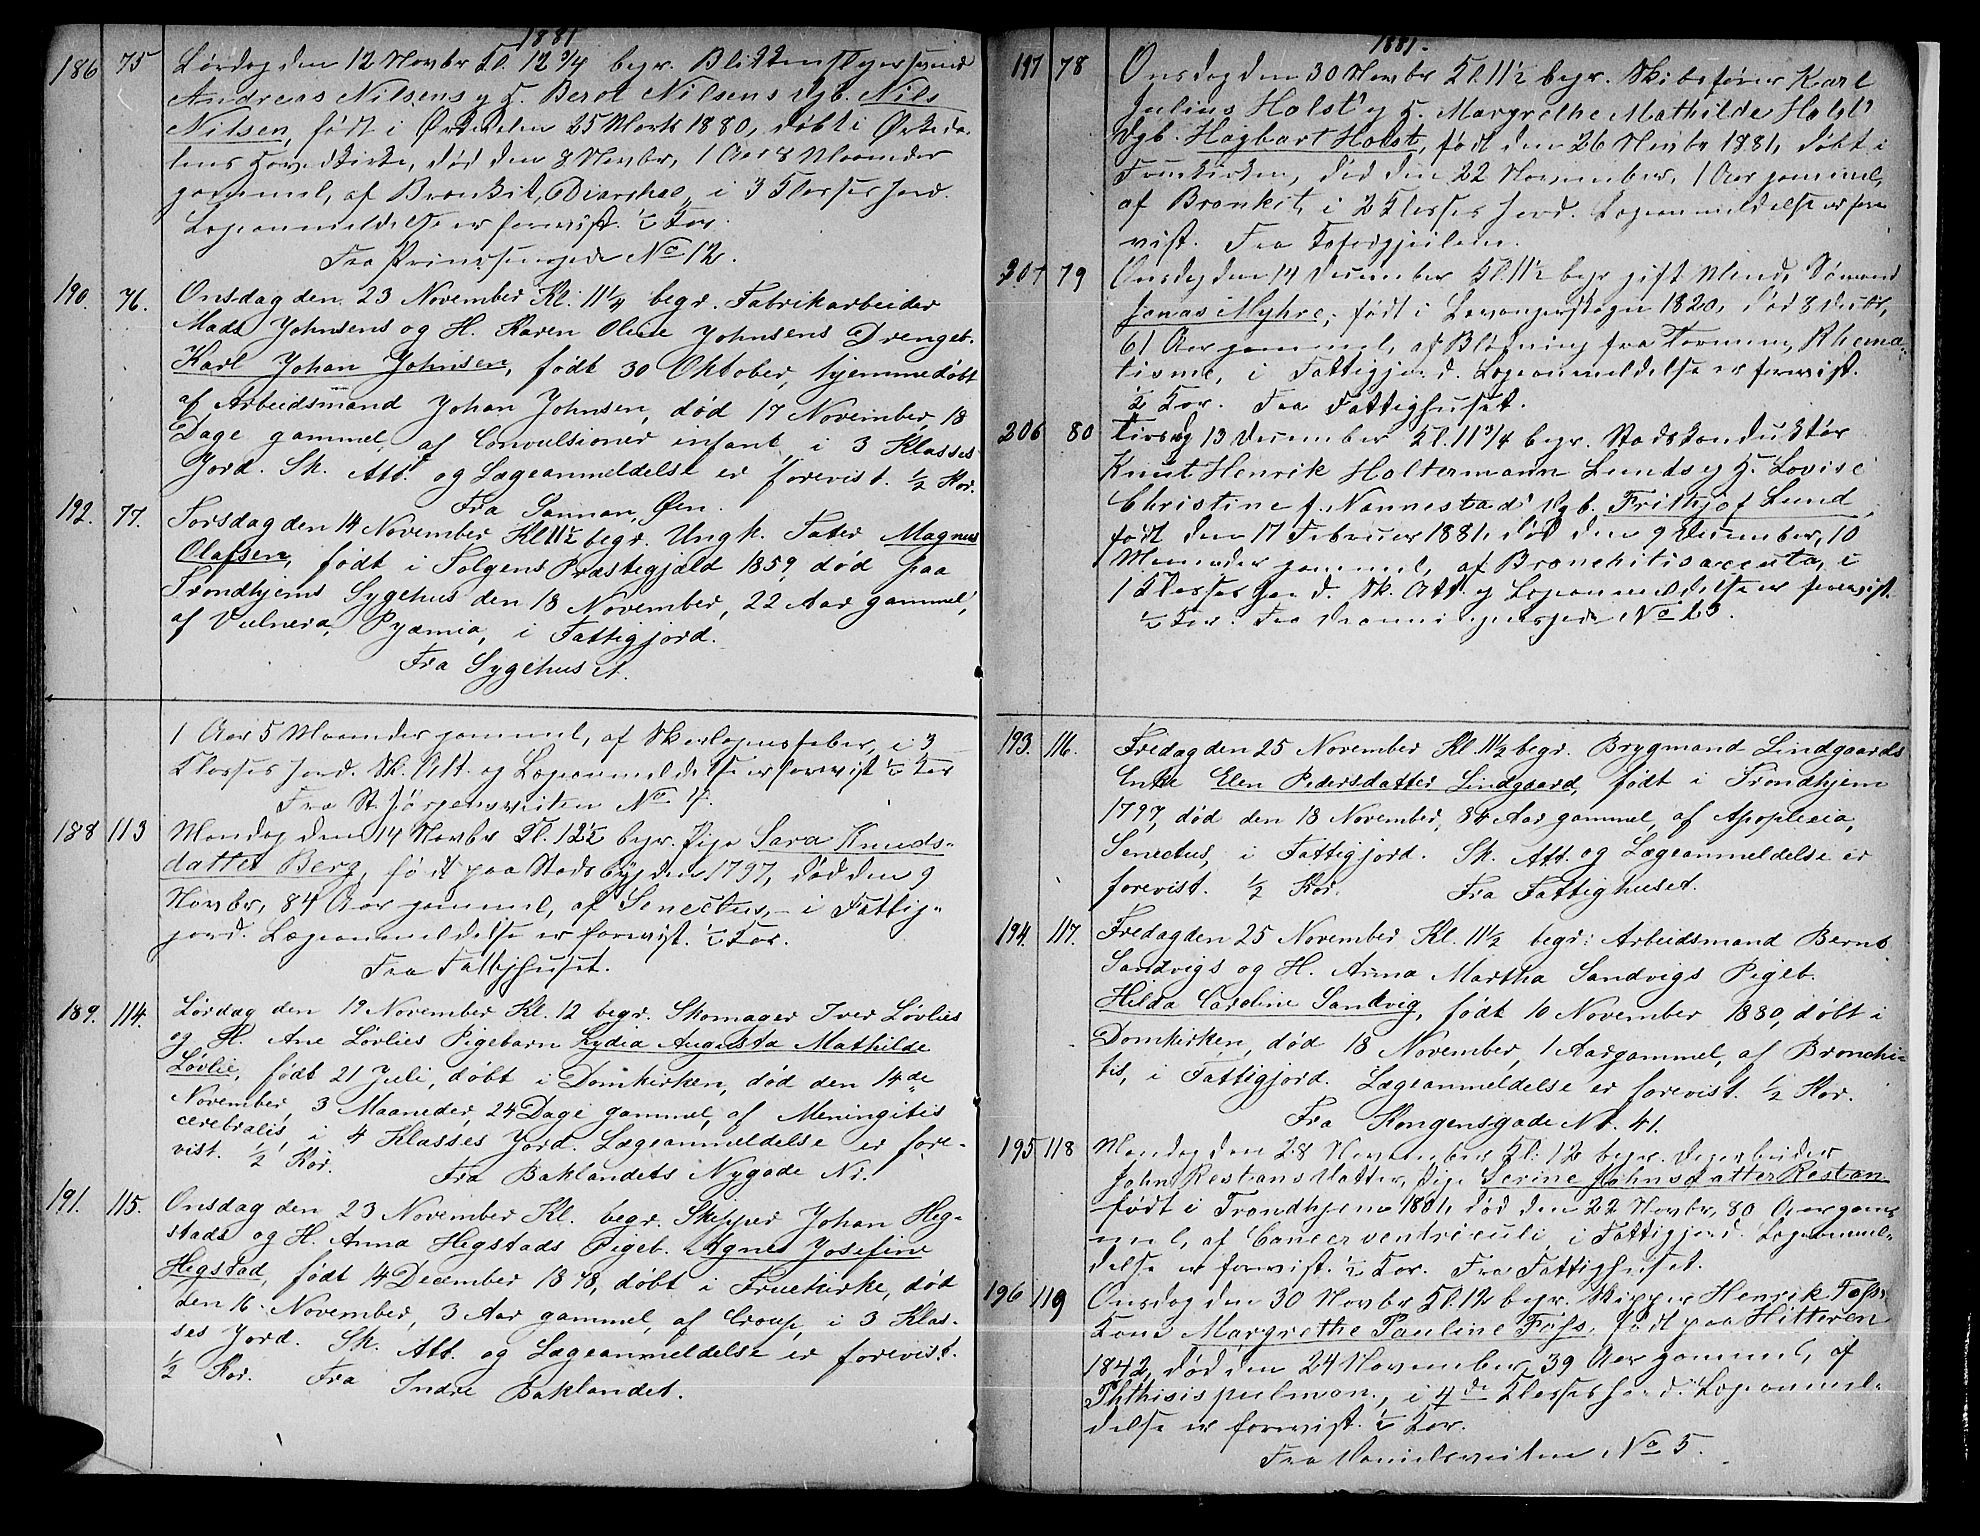 1881
186 75 Lørdag den 12 Novbr Kl. 12 3/4 begr. Blikkenslagersvend
Andreas Nilsens og H. Berot Nilsens Dgb. Nils
Nilsen, født i Ørkedalen 25 Marts 1880, døbt i Ørkeda-
lens Hovedkirke, død den 8 Novbr, 1 Aar 8 Maaneder
gammel, af Bronkit, Diarrhee, i 3 Klasses Jord.
Lægeanmeldelse er forevist. ½ Kor.
Fra Prinsensgade No 12.
190. 76. Onsdag den 23 November Kl. 11¼ begr. Fabrikarbeider
Mads Johnsens og H. Karen Oline Johnsens Drengeb.
Karl Johan Johnsen, født 30 Oktober, hjemmedøbt
af Arbeidsmand Johan Johnsen, død 17 November, 18
Dage gammel, af Convulsioner infant, i 3 Klasses
Jord. Sk. Att. og Lægeanmeldelse er forevist. ½ Kor.
Fra Sannan, Øen.
192. 77. Torsdag den 14 November Kl 11½ begr. Ungk. Tater Magnus
Olafsen, født i Solgens Præstegjæld 1859, død paa
Trondhjems Sygehus den 18 November, 22 Aar gammel,
af Vulnera, Pyæmia, i Fattigjord.
Fra Sygehuset.
1 Aar 5 Maaneder gammel, af Skarlagensfeber, i 3
Klasses Jord. Sk. Att. og Lægeanmeldelse er forevist ½ Kor
Fra St. Jørgensveiten No 4.
188 113 Mandag den 14 Novbr Kl. 12½ begr. Pige Sara Knuds-
datter Berg, født paa Stadsbygden 1797, død den 9
Novbr, 84 Aar gammel, af Senectus, - i Fattig-
jord. Lægeanmeldelse er forevist. ½ Kor.
Fra Fattighuset.
189. 114. Lørdag den 19 November Kl. 12 begr. Skomager Iver Løvlies
og H. Ane Løvlies Pigebarn Lydia Augusta Mathilde
Løvlie, født 21 Juli, døbt i Domkirken, død den 14de
November, 3 Maaneder, 24 Dage gammel, af Meningitis
cerebralis, i 4 Klasses Jord. Lægeanmeldelse er fore-
vist. ½ Kor.
Fra Baklandets Nygade Nr.
191. 115. Onsdag den 23 November Kl. begr. Skipper Johan Heg-
stads og H. Anna Hegstads Pigeb. Agnes Josefine
Hegstad, født 14 December 1878, døbt i Fruekirke, død
den 16 November, 3 Aar gammel, af Croup, i 3 Klas-
ses Jord. Sk. Att. og Lægeanmeldelse er forevist.
½ Kor. Fra Indre Baklandet.
1881.
197 78 Onsdag den 30 Novbr Kl. 11½ begr. Skibsfører Karl
Julius Holst og H. Margrethe Mathilde Holst
Dgb. Hagbart Holst, født den 26 Novbr 1881, døbt i
Fruekirken, død den 22 November, 1 Aar gammel,
af Bronkit, i 2 Klasses Jord. Lægeanmeldelse er fore
vist. Fra
207 79 Onsdag den 14 December Kl. 11½ begr gift Mand, Sømand
Jonas Myhre, født i Levangerskogn 1820, død 8 decbr,
61 Aar gammel, af Blødning fra Tarmen, Rhema-
tisme, i Fattigjord. Lægeanmeldelse er forevist.
½ Kor. Fra Fattighuset.
206 80 Tirsdag 13 December Kl. 11 3/4 begr. Stadskonduktør
Knut Henrik Holtermann Lunds og H. Lovise
Christine f. Nannestad's Dgb. Frithjof Lund,
født den 17 Februar 1881, død den 9 December, 10
Maaneder gammel, af Bronchitis accuta, i
1 Klasses Jord. Sk. Att. og Lægeanmeldelse er forevist.
½ Kor. Fra Dronningensgade No 23.
193. 116. Fredag den 25 November Kl. 11½ begr. Brygmand Lindgaards
Enke Elen Pedersdatter Lindgaard, født i Trondhjem
1797, død den 18 November, 84 Aar gammel, af Apoplexia,
Senectus, i Fattigjord. Sk. Att. og Lægeanmeldelse er
forevist. ½ Kor. Fra Fattighuset.
194. 117. Fredag den 25 November Kl. 11½ begr. Arbeidsmand Bernt
Sandvigs og H. Anna Martha Sandvigs Pigeb.
Hilda Caroline Sandvig, født 10 November 1880, døbt i
Domkirken, død 18 November, 1 Aar gammel, af Bronchi-
tis, i Fattigjord. Lægeanmeldelse er forevist. ½ Kor.
Fra Kongensgade No. 41.
195 118 Mandag den 28 November Kl. 12 begr. Veiarbeider
John Restans Datter, Pige Serine Johnsdatter Restan
født i Trondhjem 1801, død den 22 Novbr, 80 Aar gam-
mel, af Cancer ventriculi i Fattigjord. Lægeanmel-
delse er forevist. ½ Kor. Fra Fattighuset.
196 119 Onsdag den 30 Novbr Kl. 12 begr. Skipper Henrik Foss
Kone Margrethe Pauline Foss, født paa Hitteren
1842, død den 24 November, 39 Aar gammel, af
Phthisis pulmon., i 4de Klasses Jord. Lægeanmel-
delse er forevist. ½ Kor.
Fra Danielsveiten No 5.